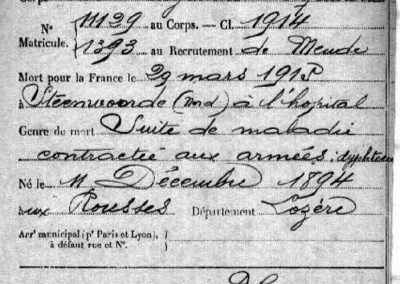 N° 11129 au Corps. — Cl. 1914
Matricule. 1393 au Recrutement de Mende
Mort pour la France le 29 mars 1915
à Steenwoorde (Nord) à l'hopital
Genre de mort Suite de maladie
contractié aux armées: dyphterie
Né le 11 Décembre 1894
à aux Rousses Département Lozère
Arr¹ municipal (p² Paris et Lyon),
à défaut rue et N°.